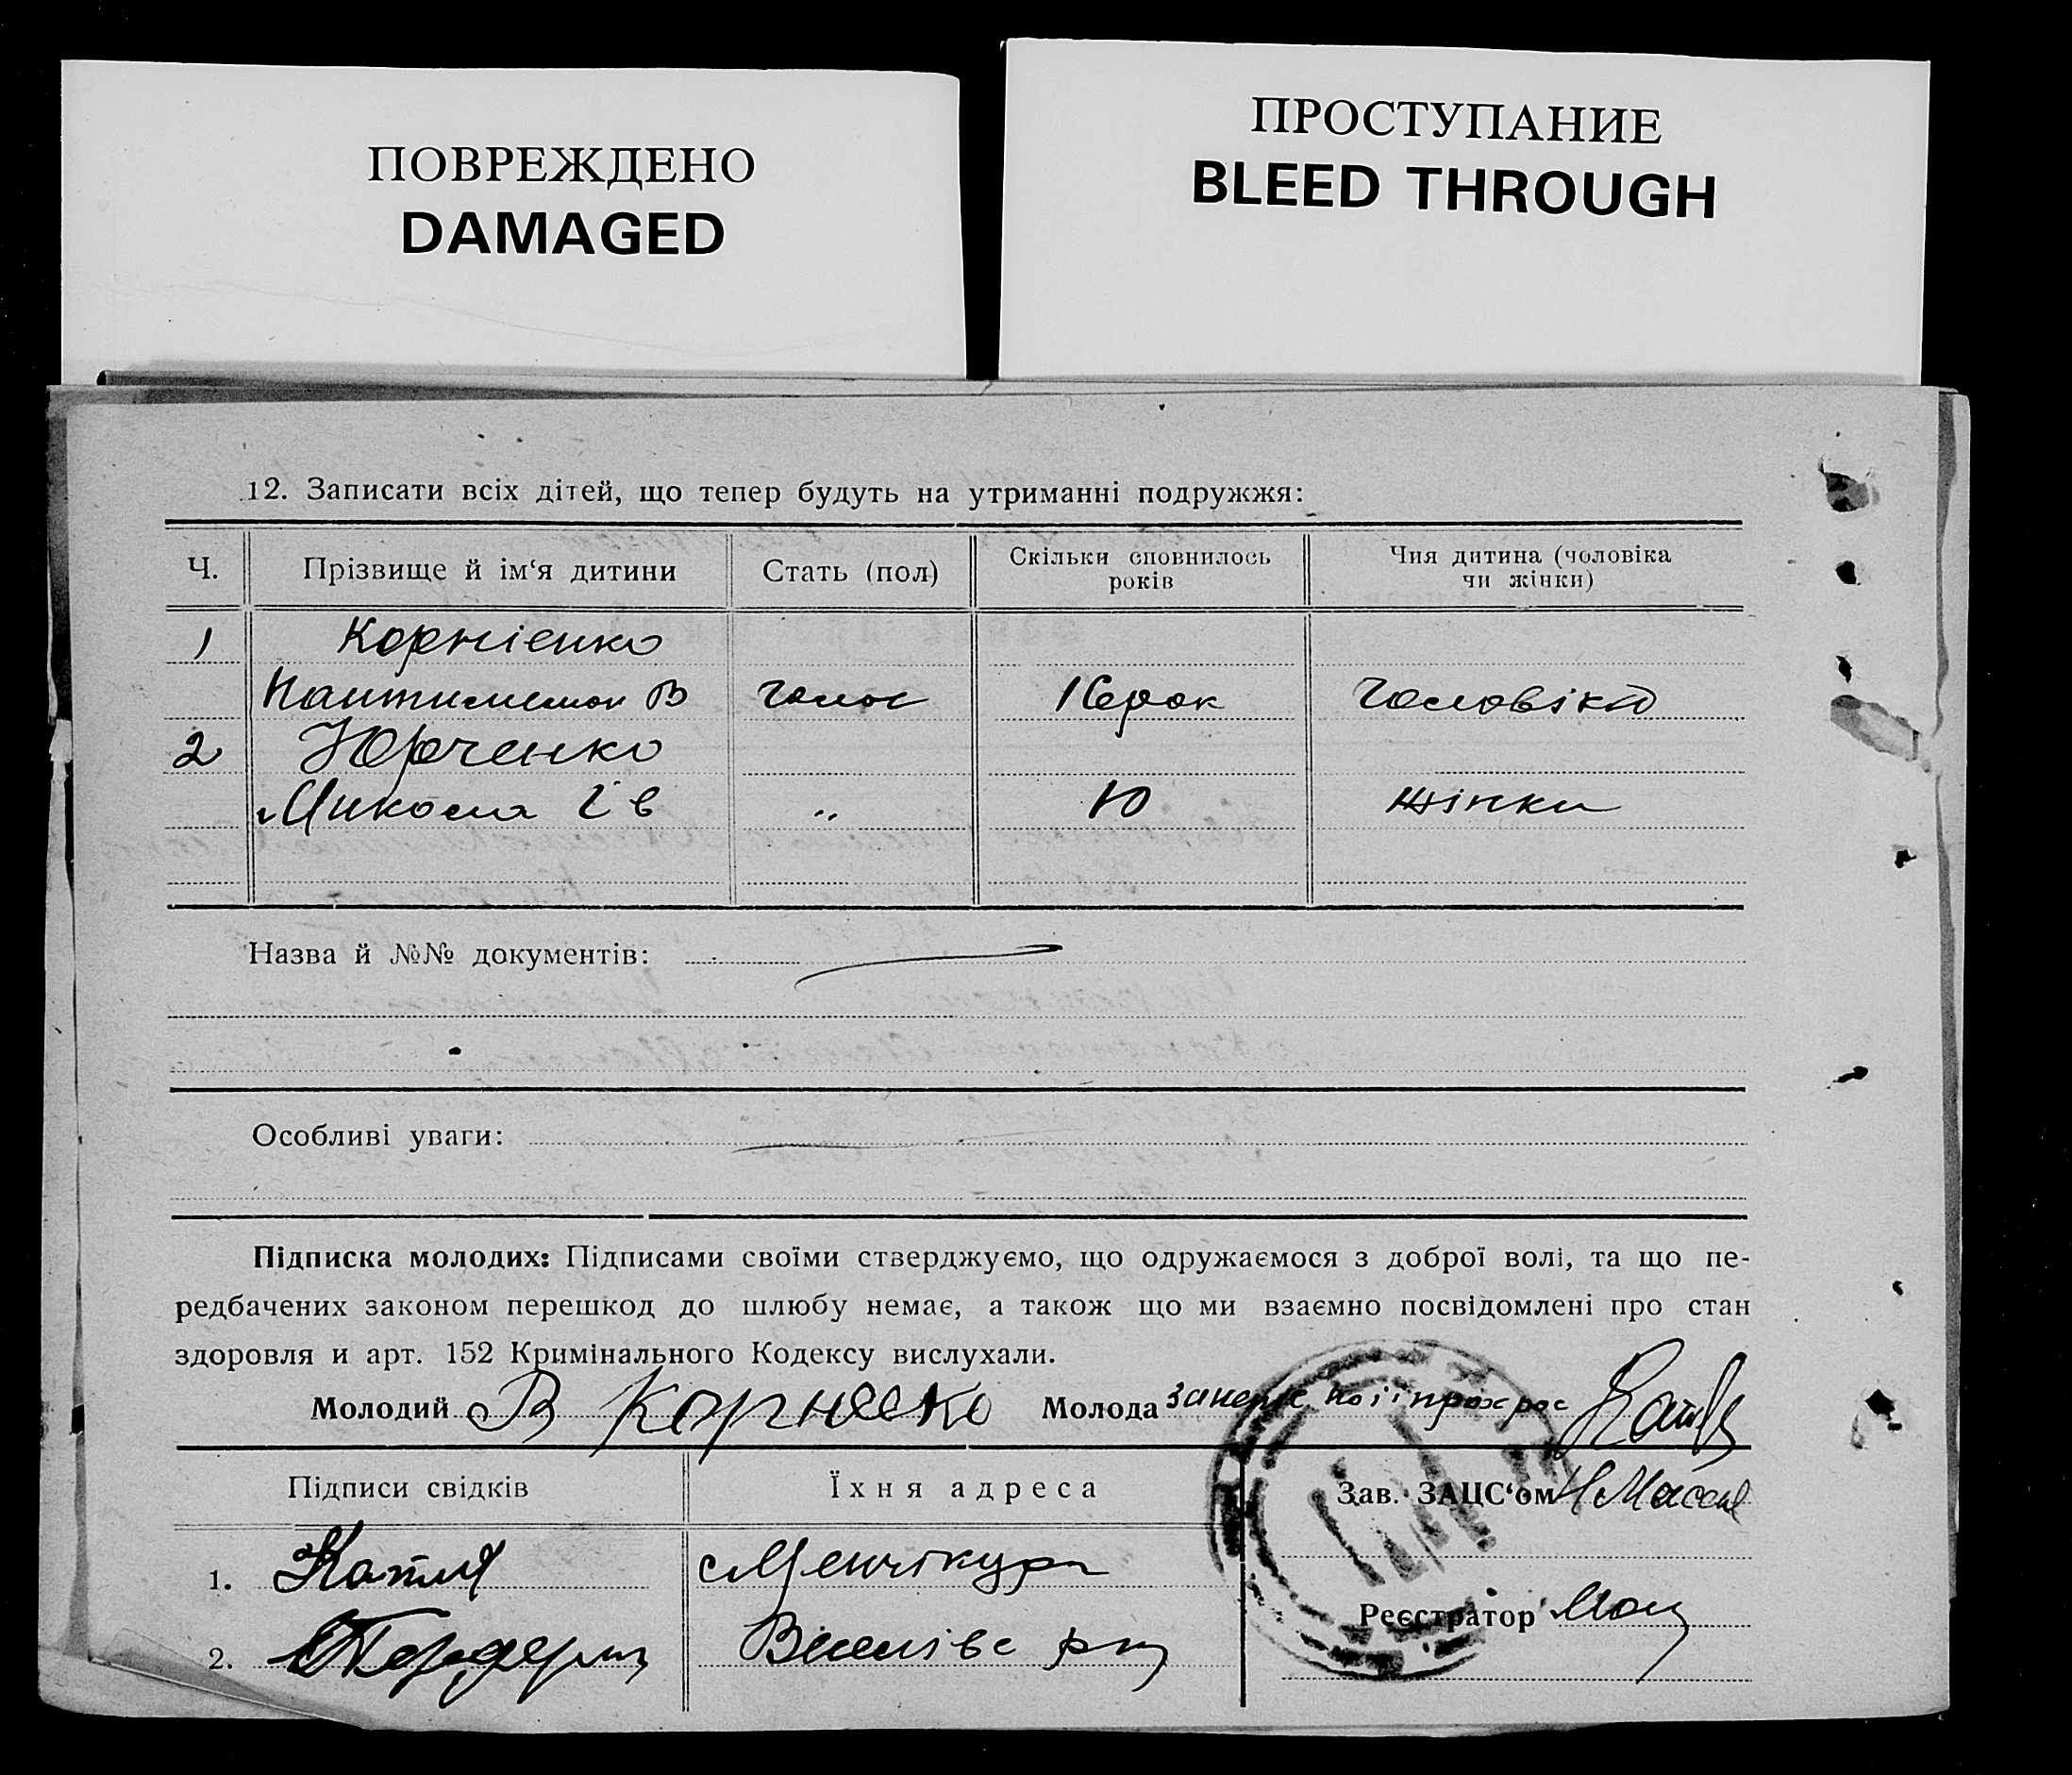 ПОВРЕЖДЕНО
DAMAGED
ПРОСТУПАНИЕ
BLEED THROUGH
12. Записати всіх дітей, що тепер будуть на утриманні подружжя:
Ч. Прізвище й ім‘я дитини Стать (пол) Скільки сповнилось років Чия дитина (чоловіка чи жінки)
1 Корнієнко
В чолос чоловіка
2 Юрченко
Микола Ів „ 10 жінки
Назва й №№ документів:
Особливі уваги:
Підписка молодих: Підписами своїми стверджуємо, що одружаємося з доброї волі, та що пе-
редбачених законом перешкод до шлюбу немає, а також що ми взаємно посвідомлені про стан
здоровля и арт. 152 Кримінального Кодексу вислухали.
Молодий В Молода
Підписи свідків Їхня адреса Зав. ЗАЦС‘ом
1. с Менчікури
Реєстратор
2.